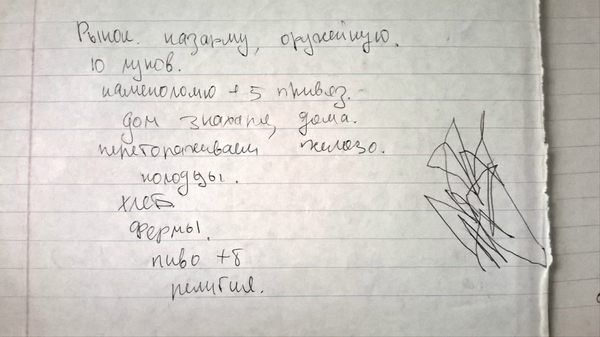 Рынок. казарму, оружейную.
10 луков.
каменоломню + 5 привяз.
дом знахаря, дома.
перегораживаем железо.
колодцы.
хлеб
фермы.
пиво +8
религия.